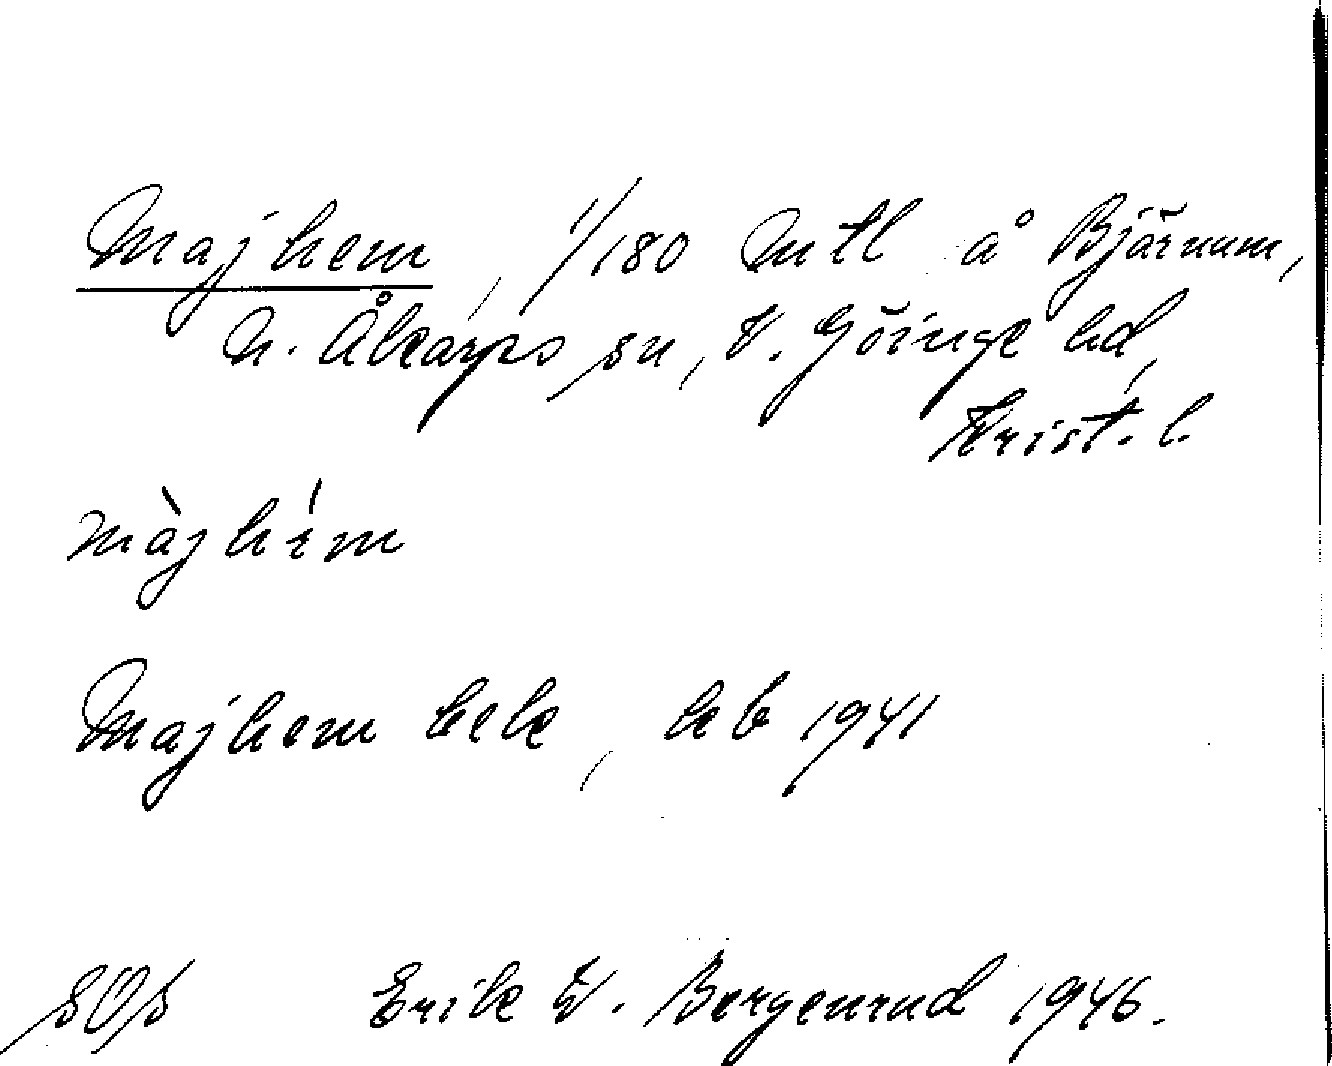 Majhem, 1/180 mtl å Bjärnum,
N. Åkarps sn, V. Göinge hd,
Krist. l.
màjhém
Majhem bebe, hb 1941
SOS Erik W. Bergenrud 1946.